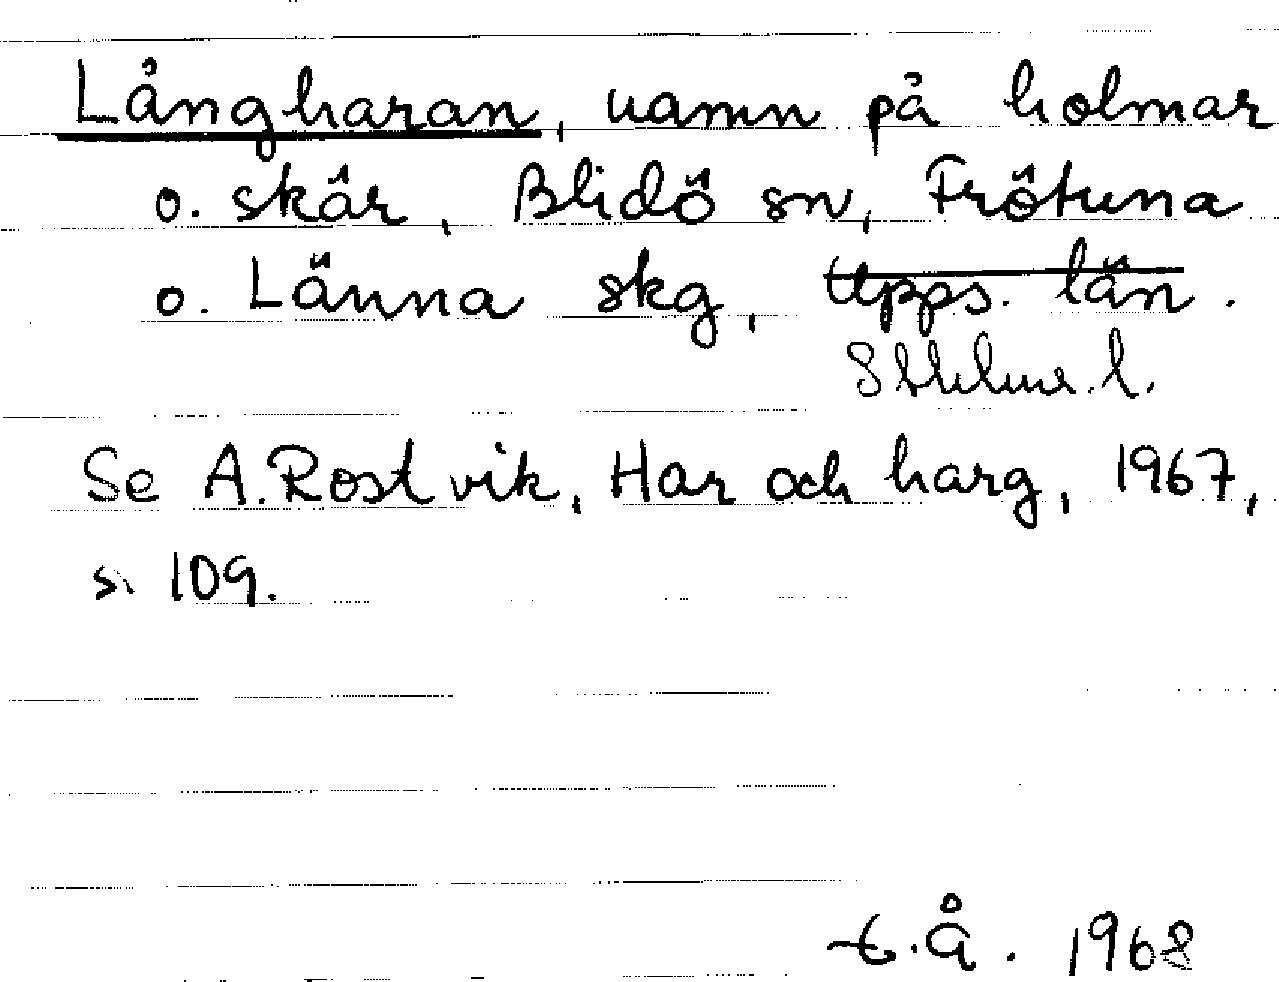 Långharan, namn på holmar
o. skär, Blidö sn, Frötuna
o. Länna skg, Upps. län.
Sthlms. l.
Se A. Rostvik, Har och harg, 1967,
s. 109.
t.Å. 1968